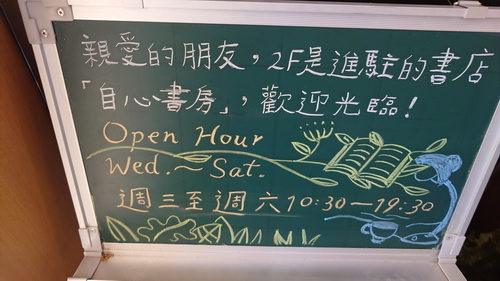 親愛的朋友，2F是進駐的書店
「自心書房」，歡迎光臨！
Open Hour
Wed.～Sat.
週三至週六10:30－19:30